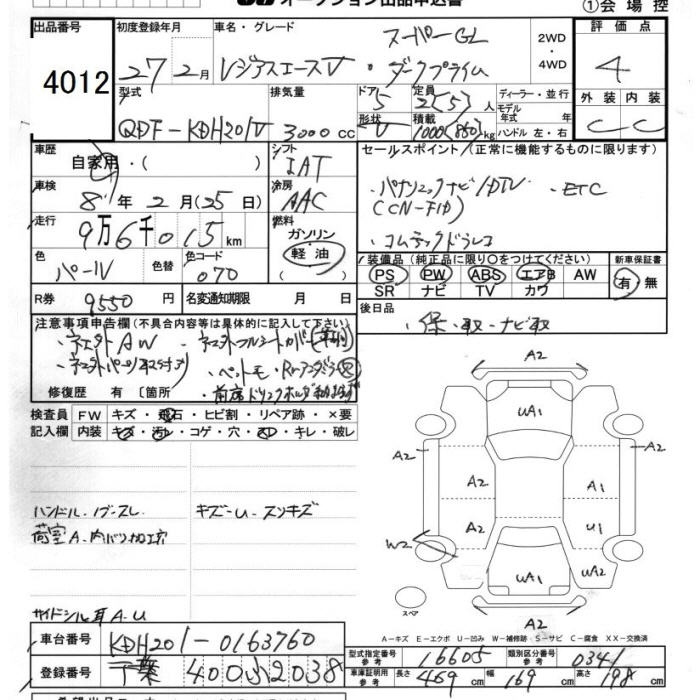 オークション出品申込書
①会場控
出品番号
4012
初度登録年月
27年2月
車名・グレード
レジアスエースV・スーパーGL ダークプライム
2WD・4WD
評価点
4
外装 内装
C C
型式
QDF-KDH201V
排気量
3000cc
ドア 5
形状 V
定員 2(5)人
積載 1000(850)kg
ディーラー・並行
モデル年式 年式
ハンドル 左・右
車歴
自家用・( )
シフト
IAT
セールスポイント/(正常に機能するものに限ります)
・パナソニックナビ/DTV ・ETC
(CN-F1D)
・コムテックドラレコ
車検
8年2月(25日)
冷房
AAC
走行
9万6千015km
燃料
ガソリン
軽油
色
パール
色替
色コード
070
装備品(純正品に限り○をつけてください)
PS PW ABS エアB AW
SR ナビ TV カワ
新車保証書
有・無
R券
9550円
名変通知期限 月 日
後日品
・保・取・ナビ取
注意事項申告欄(不具合内容等は具体的に記入して下さい)
・社外AW
修復歴 有 〔箇所
検査員記入欄
FW キズ・飛石・ヒビ割・リペア跡・×要
内装 キズ・汚れ・コゲ・穴・スレ・キレ・破レ
ハンドル・ノブ・スレ
キズ-U-スリキズ
荷室A・内バリ加工穴
サイドシル耳A.U
A2
UA1
A2 A2
A2 A1
A2 U1
W2
UA1
スペア
A2
A-キズ E-エクボ U-凹み W-補修跡・S-サビ C-腐食 XX-交換済
車台番号
KDH201-0163760
型式指定番号 参考
16605
類別区分番号 参考
0341
登録番号
千葉 400 32038
車庫証明用 参考
長さ 469cm 幅 169cm 高さ 198cm